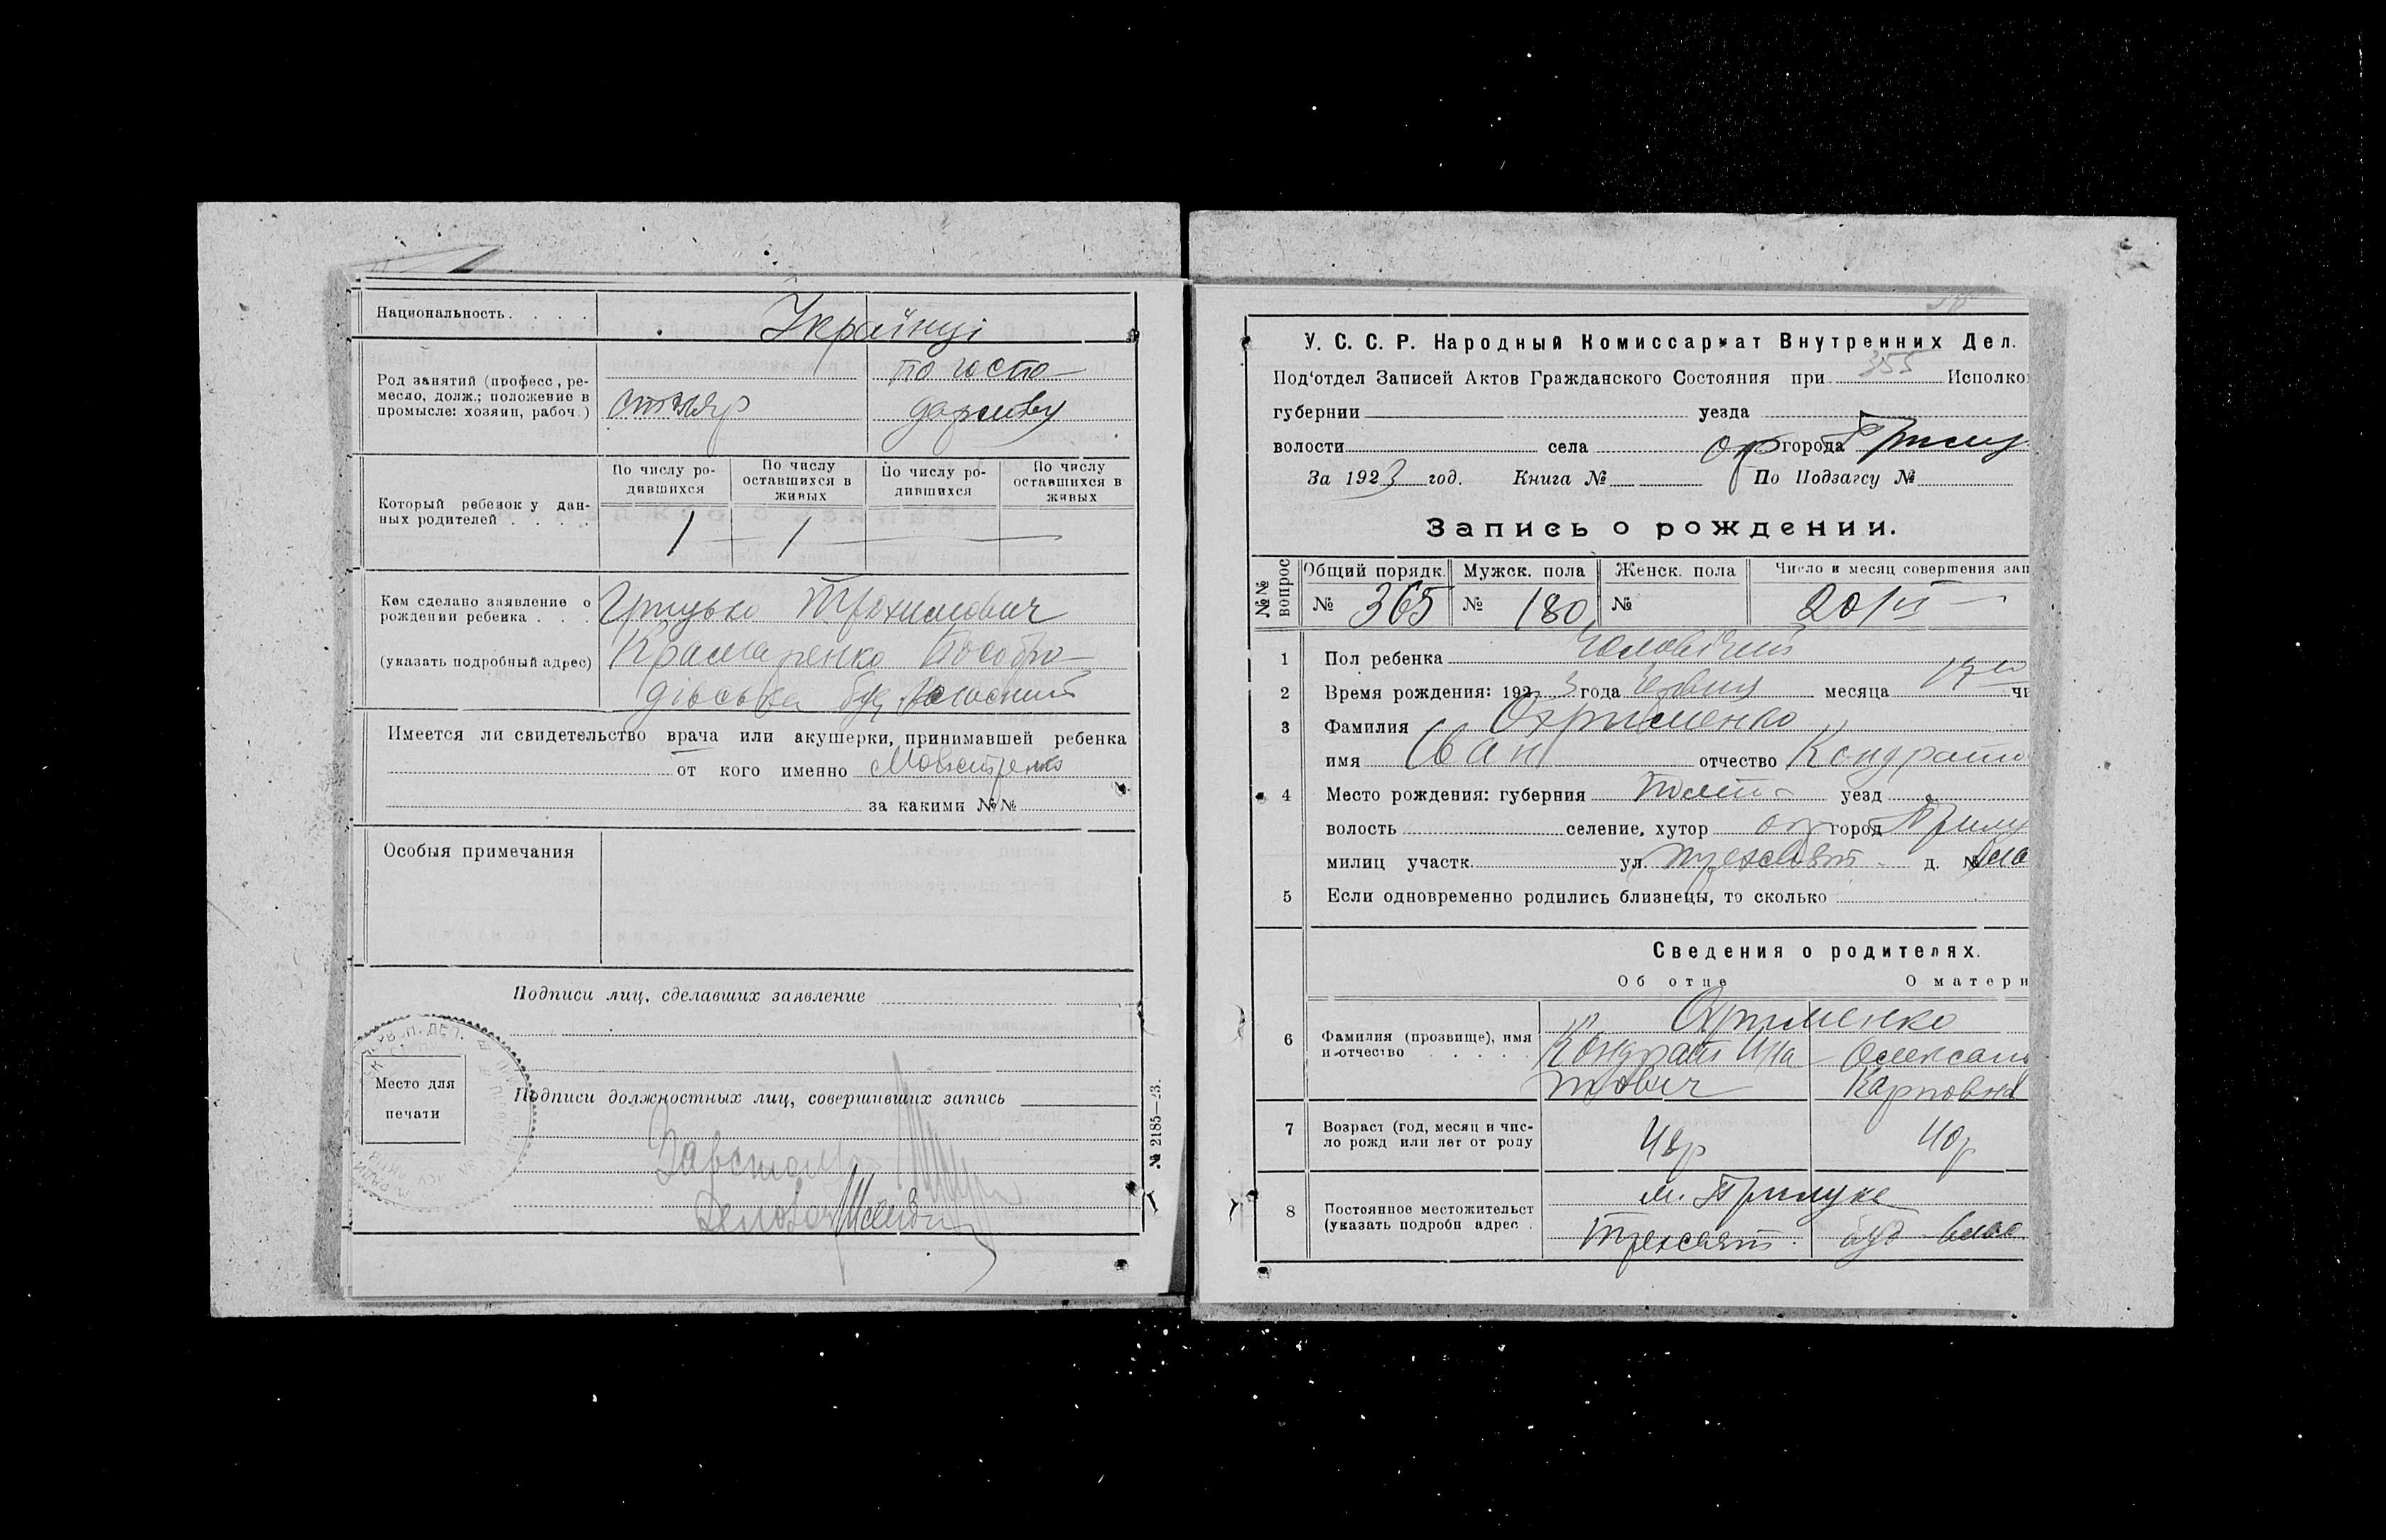 Национальность . . . . Українці
Род занятий (професс, ре-
месло, долж.; положение в
промысле: хозяин, рабоч.)
столяр
по госпо-
дарству
Который ребенок у дан-
ных родителей . . . .
По числу ро-
дившихся
По числу
оставшихся в
живых
По числу ро-
дившихся
По число
оставшихся в
живых
1 — 1 —
Кем сделано заявление о
рождении ребенка . . .
(указать подробный адрес)
Грицько Трохимович
Крамаренко
дівська буд власний
Имеется ли свидетельство врача или акушерки, принимавшей ребенка
от кого именно
за какими №№
Особыя примечания
Подписи лиц, сделавших заявление
Место для
печати
Подписи должностных лиц, совершивших запись
Завстолу
Діловод
№ 2185—23.
У. С. С. Р. Народный Комиссариат Внутренних Дел.
Под'отдел Записей Актов Гражданского Состояния при 355 Исполко
губернии уезда
волости села ор города Прилу
За 1923 год. Книга № По Подзагсу №
Запись о рождении.
№№ вопрос
Общий порядк. Мужск. пола Женск. пола Число и месяц совершения зап
№ 365 № 180 № 20/VI —
1 Пол ребенка Чоловічий
2 Время рождения: 1923 года Червня месяца 17го чи
3 Фамилия Охрименко
имя Іван отчество Кондрато
4 Место рождения: губерния Полт- уезд
волость селение, хутор ор город Прилу
милиц участк. ул. Трехсвят. д. № вла
5 Если одновременно родились близнецы, то сколько
Сведения о родителях.
Об отце О матери
6 Фамилия (прозвище), имя
и отчество . . . . .
Охрименко
Кондрат Ігна-
тович
Олексан
Карповна
7 Возраст (год, месяц и чис-
ло рожд или лет от роду
42р
40р
8 Постоянное местожительст
(указать подробн адрес .
м. Прилуке
Трехсвят. буд влас